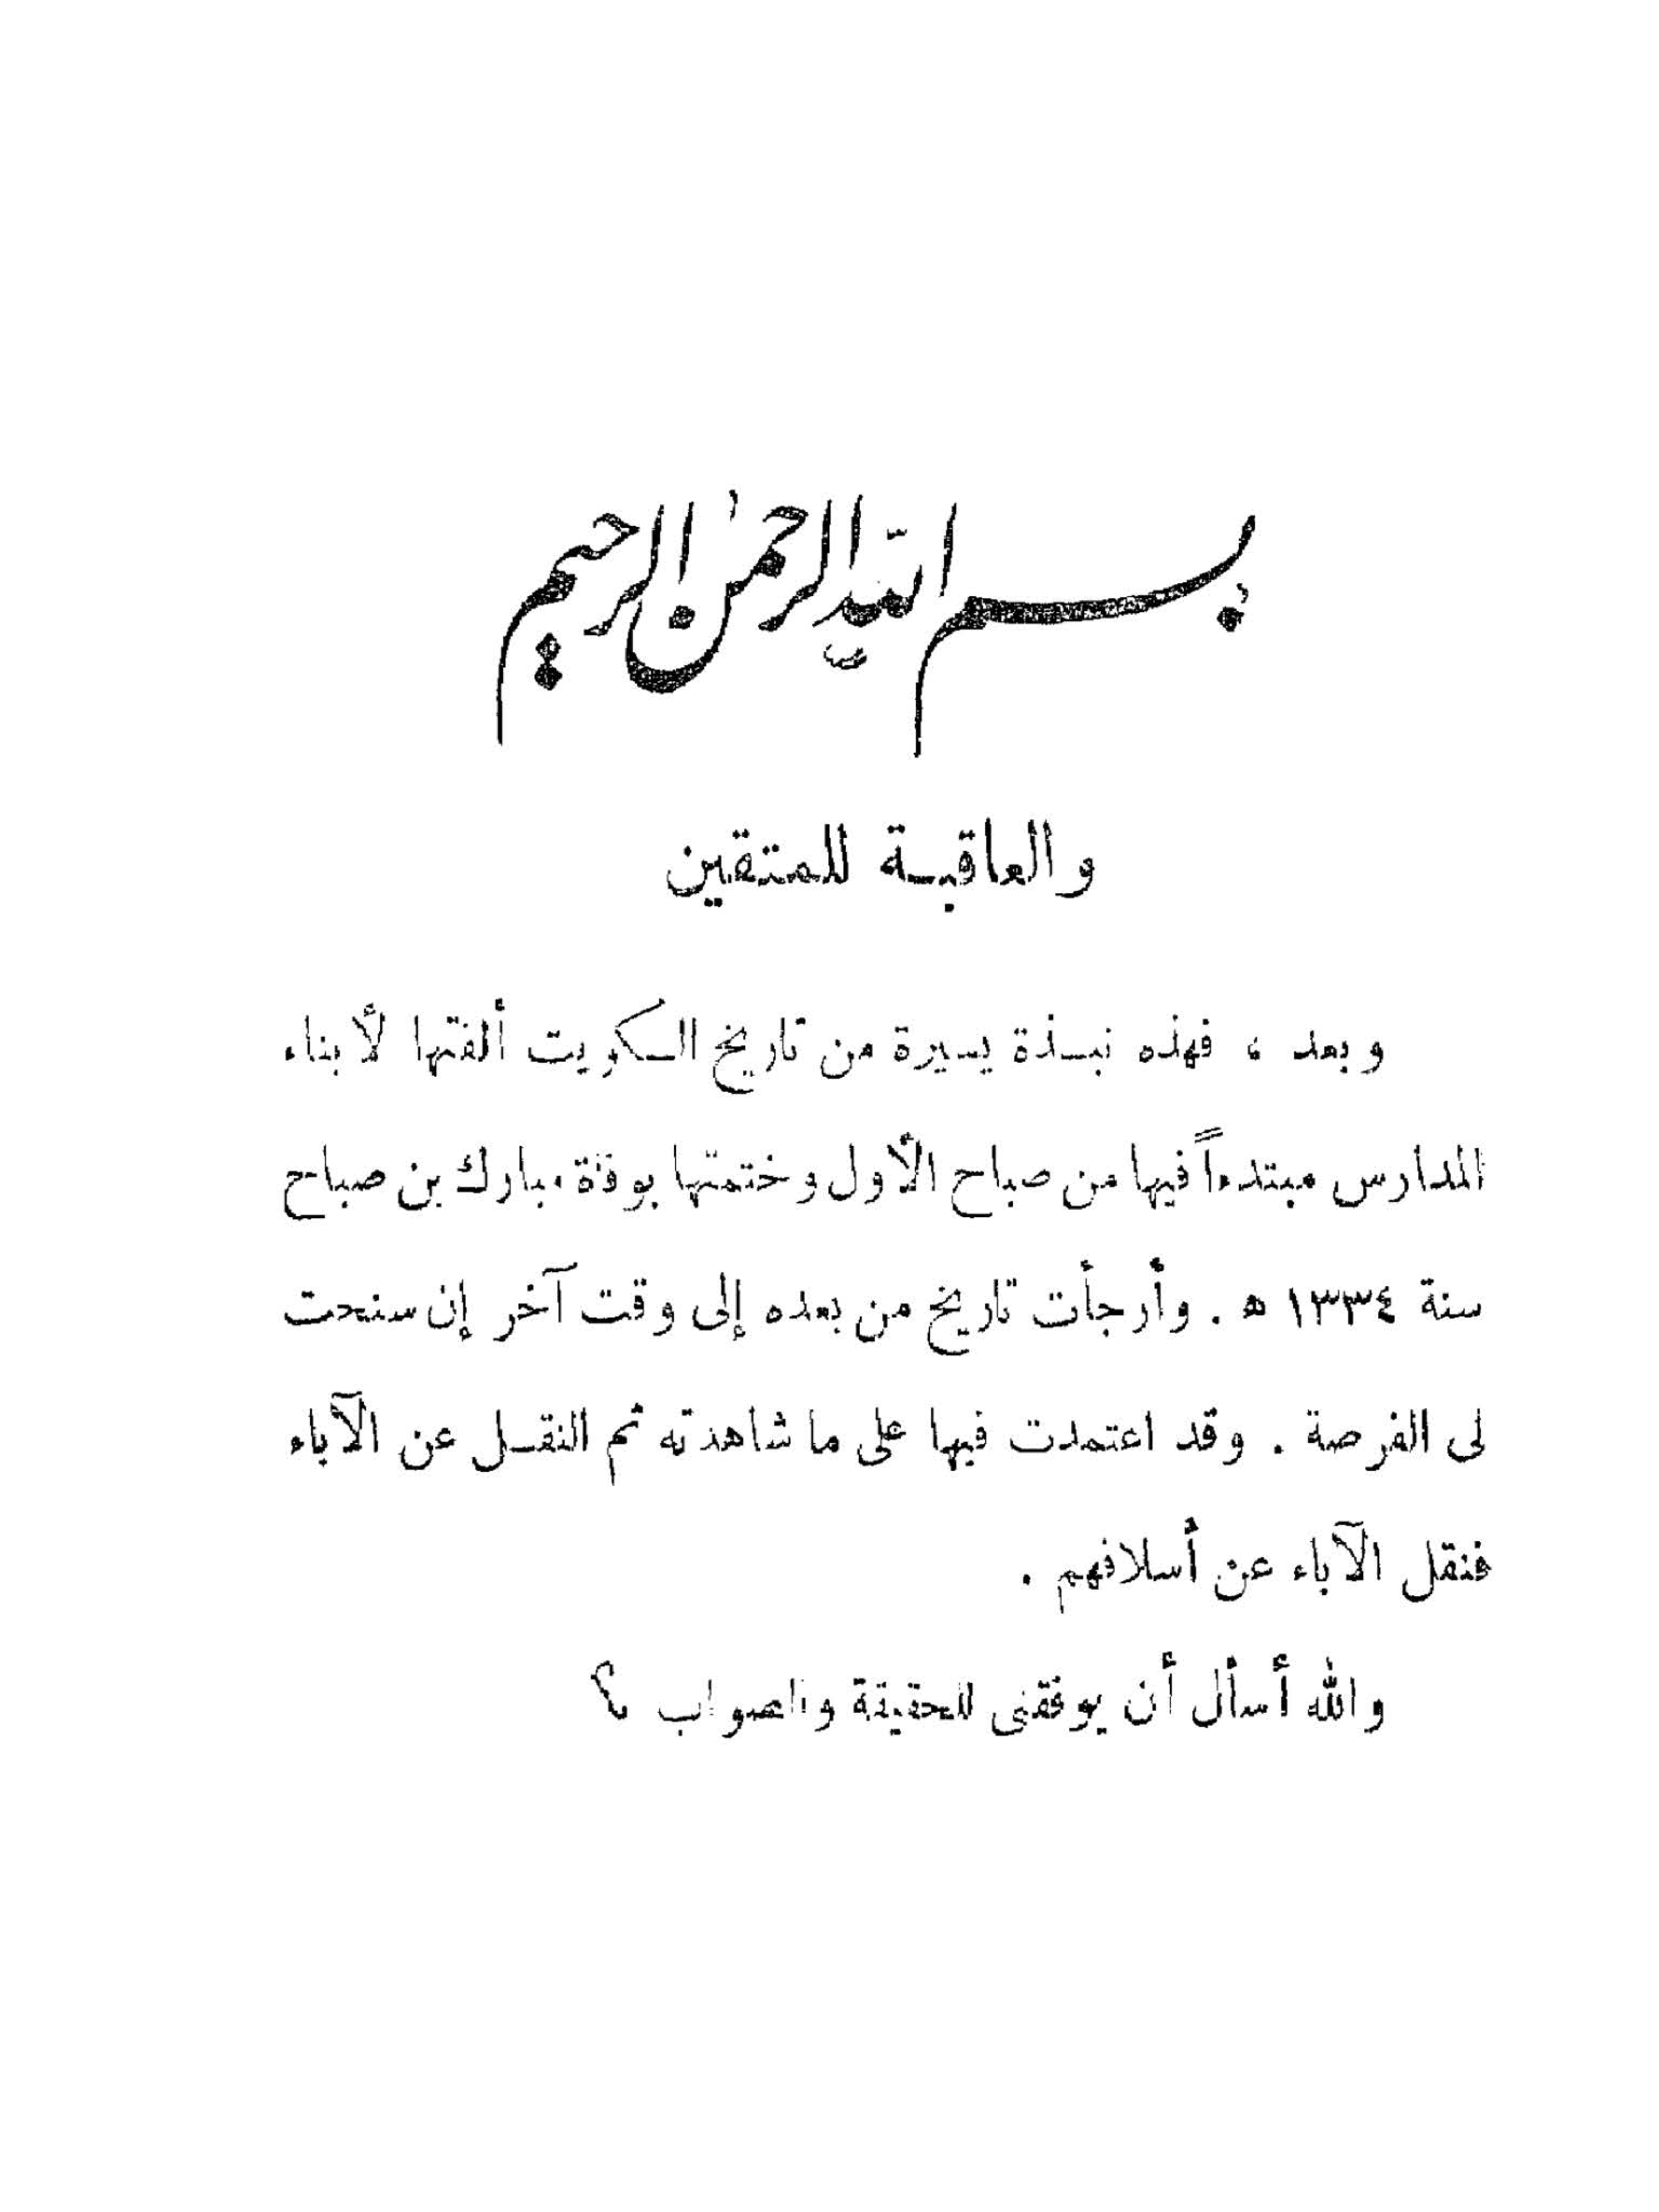 بسم الله الرحمن الرحيم
والعاقبة للمتقين
وبعد ، فهذه نبذة يسيرة من تاريخ الكويت ألفتها لأبناء
المدارس مبتدءاً فيها من صباح الأول وختمتها بوفاة مبارك بن صباح
سنة ١٣٣٤ ه . وأرجأت تاريخ من بعده إلى وقت آخر إن سنحت
لى الفرصة . وقد اعتمدت فيها على ما شاهدته ثم النقل عن الآباء
فنقل الآباء عن أسلافهم .
والله أسأل أن يوفقنى للحقيقة والصواب